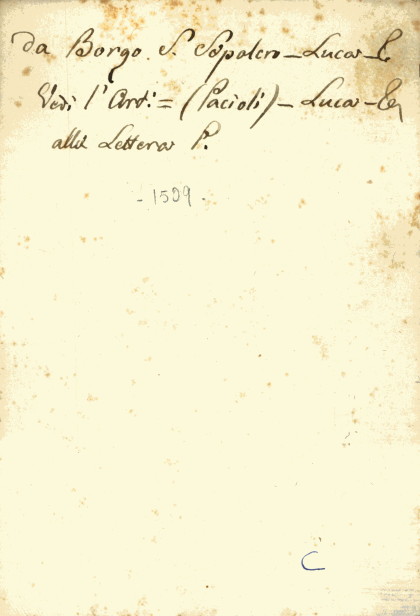 da Borgo. S. Sepolcro – Luca –
Vedi l'Art: = (Pacioli) – Luca –
alla Lettera P.
- 1509 -
C